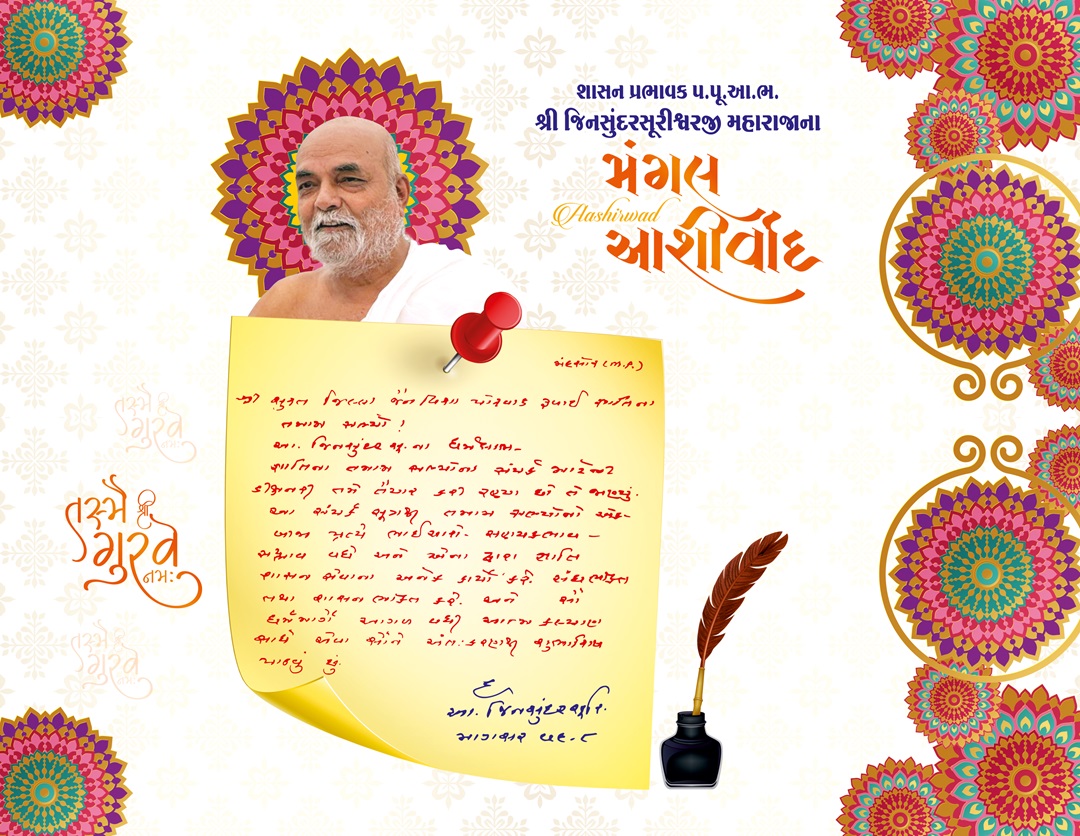 શાસન પ્રભાવક પ.પૂ.આ.ભ.
શ્રી જિનસુંદરસૂરીશ્વરજી મહારાજાના
મંગલ
Aashirwad
આશીર્વાદ
મંદસૌર (M.P.)
શ્રી સુરત જિલ્લા જૈન વિશા ઓસવાલ
તમામ સભ્યો !
આ. જિનસુંદરસૂ.ના ધર્મલાભ-
જ્ઞાતિના તમામ સભ્યોના સંપર્ક માટેની
ડીક્ષનરી તમે તૈયાર કરી રહ્યા છો તે જાણ્યું.
આ સંપર્ક સૂત્રથી તમામ સભ્યોનો એક-
બીજા પ્રત્યે ભાઈચારો-
સદ્ભાવ વધે અને એના દ્વારા જ્ઞાતિ
શાસન સેવાના અનેક કાર્યો કરે સંઘભક્તિ
તથા શાસન ભક્તિ કરે. અને સૌ
ધર્મમાર્ગે આગળ વધી આત્મ કલ્યાણ
સાધે એવા સૌને અંતઃકરણથી શુભાશિષ
પાઠવું છું.
દ
આ. જિનસુંદરસૂરિ.
તસ્મૈ શ્રી
ગુરવે
નમઃ
તસ્મૈ શ્રી
ગુરવે
નમઃ
તસ્મૈ શ્રી
ગુરવે
નમઃ